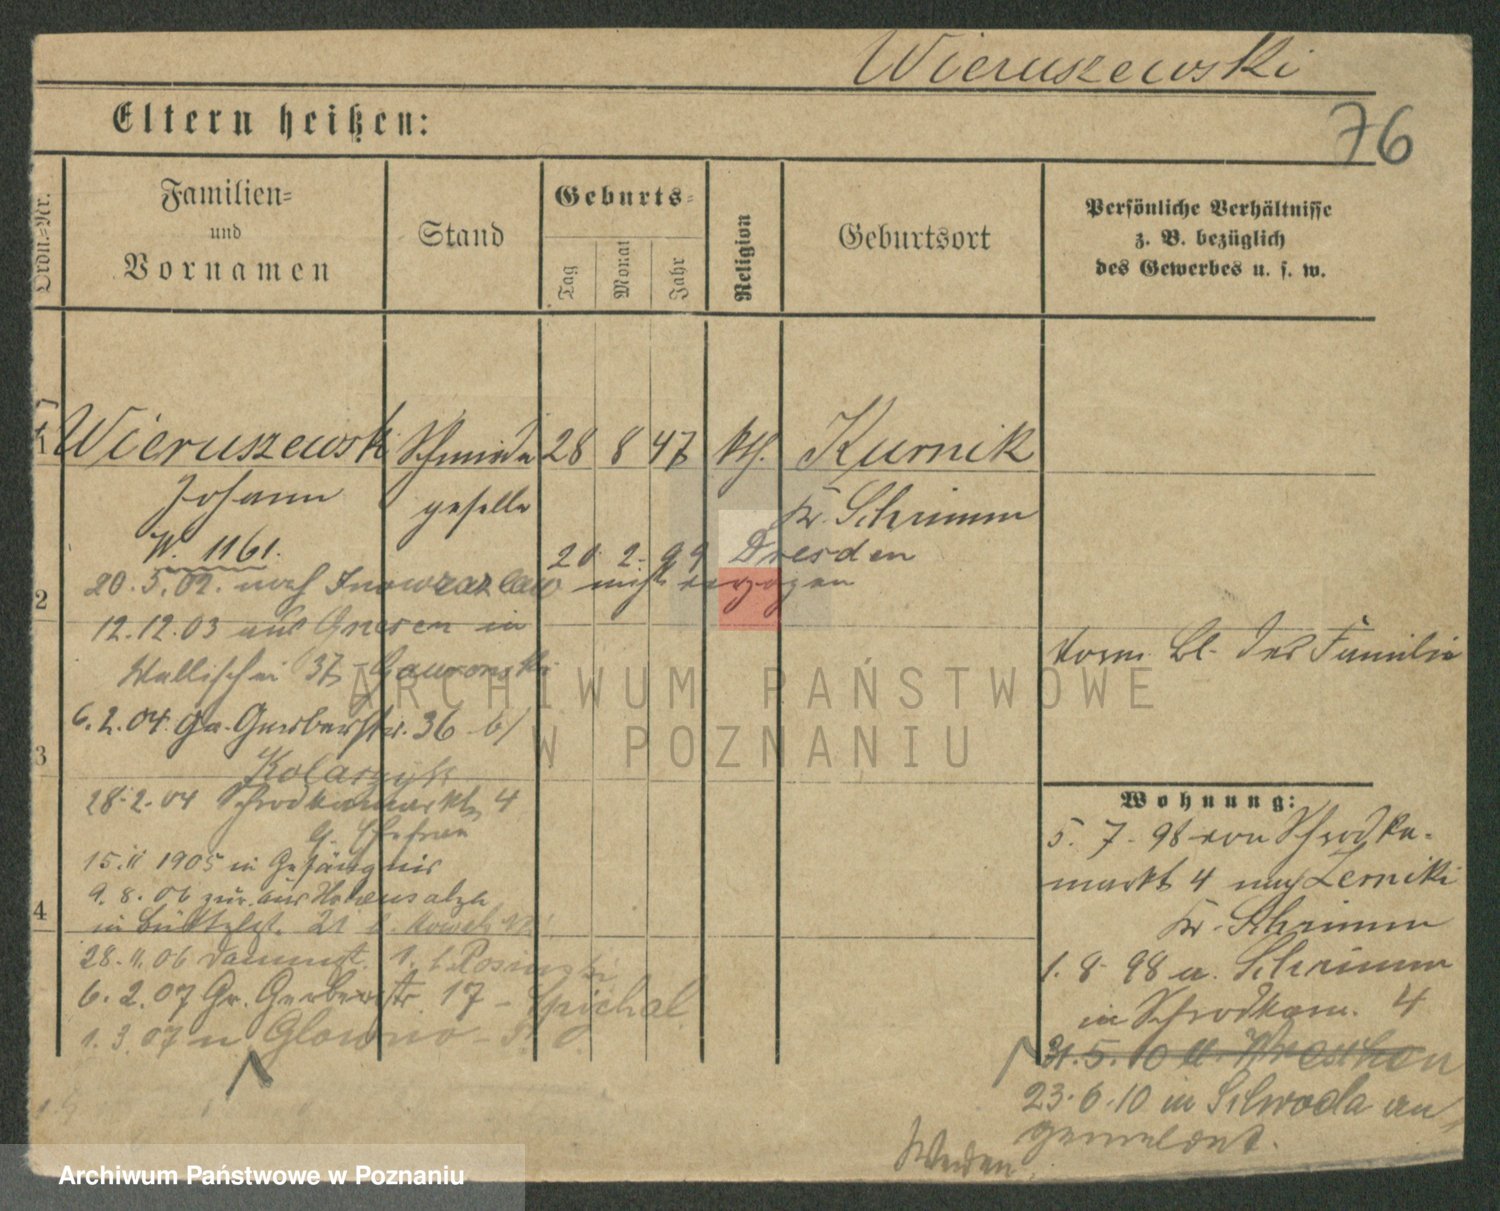 Wieruszewski
76
Eltern heißen:
Ordn.=Nr.
Familien=
und
Vornamen
Stand
Geburts=
Tag
Monat
Jahr
Religion
Geburtsort
Persönliche Verhältnisse
z. B. bezüglich
des Gewerbes u. s. w.
1
Wieruszewski
Schmiede
28 8 47
kth.
Kurnik
Johann
geselle
Kr. Schrimm
W. 1161.
20. 2. 99 Dresden
2
20.5.02. nach Inowrazlaw nicht verzogen
12.12.03 aus Gnesen in
Wallischei 37 Gawronski
Vorm. Bl. der Familie
6.2.04. Gr. Gerberstr. 36 b/
3
Kolaszyk
28.2.04 Schrodkamarkt 4
Wohnung:
5. 7. 98 von Schrodka-
15.11 1905 in Gefängnis
markt 4 nach Zerniki
9.8.06 zur. aus Hohensalza
Kr. Schrimm
4
in 21
28.11.06 Dammst. 1. b. Rosinski
1. 8. 98 a. Schrimm
6.2.07 Gr. Gerberstr 17 - Spichal
in Schrodkam. 4
1.3.07 n Glowno
31.5.10 n. Wreschen
23.6.10 in Schroda an
gemeldet.
ARCHIWUM PAŃSTWOWE
W POZNANIU
Archiwum Państwowe w Poznaniu